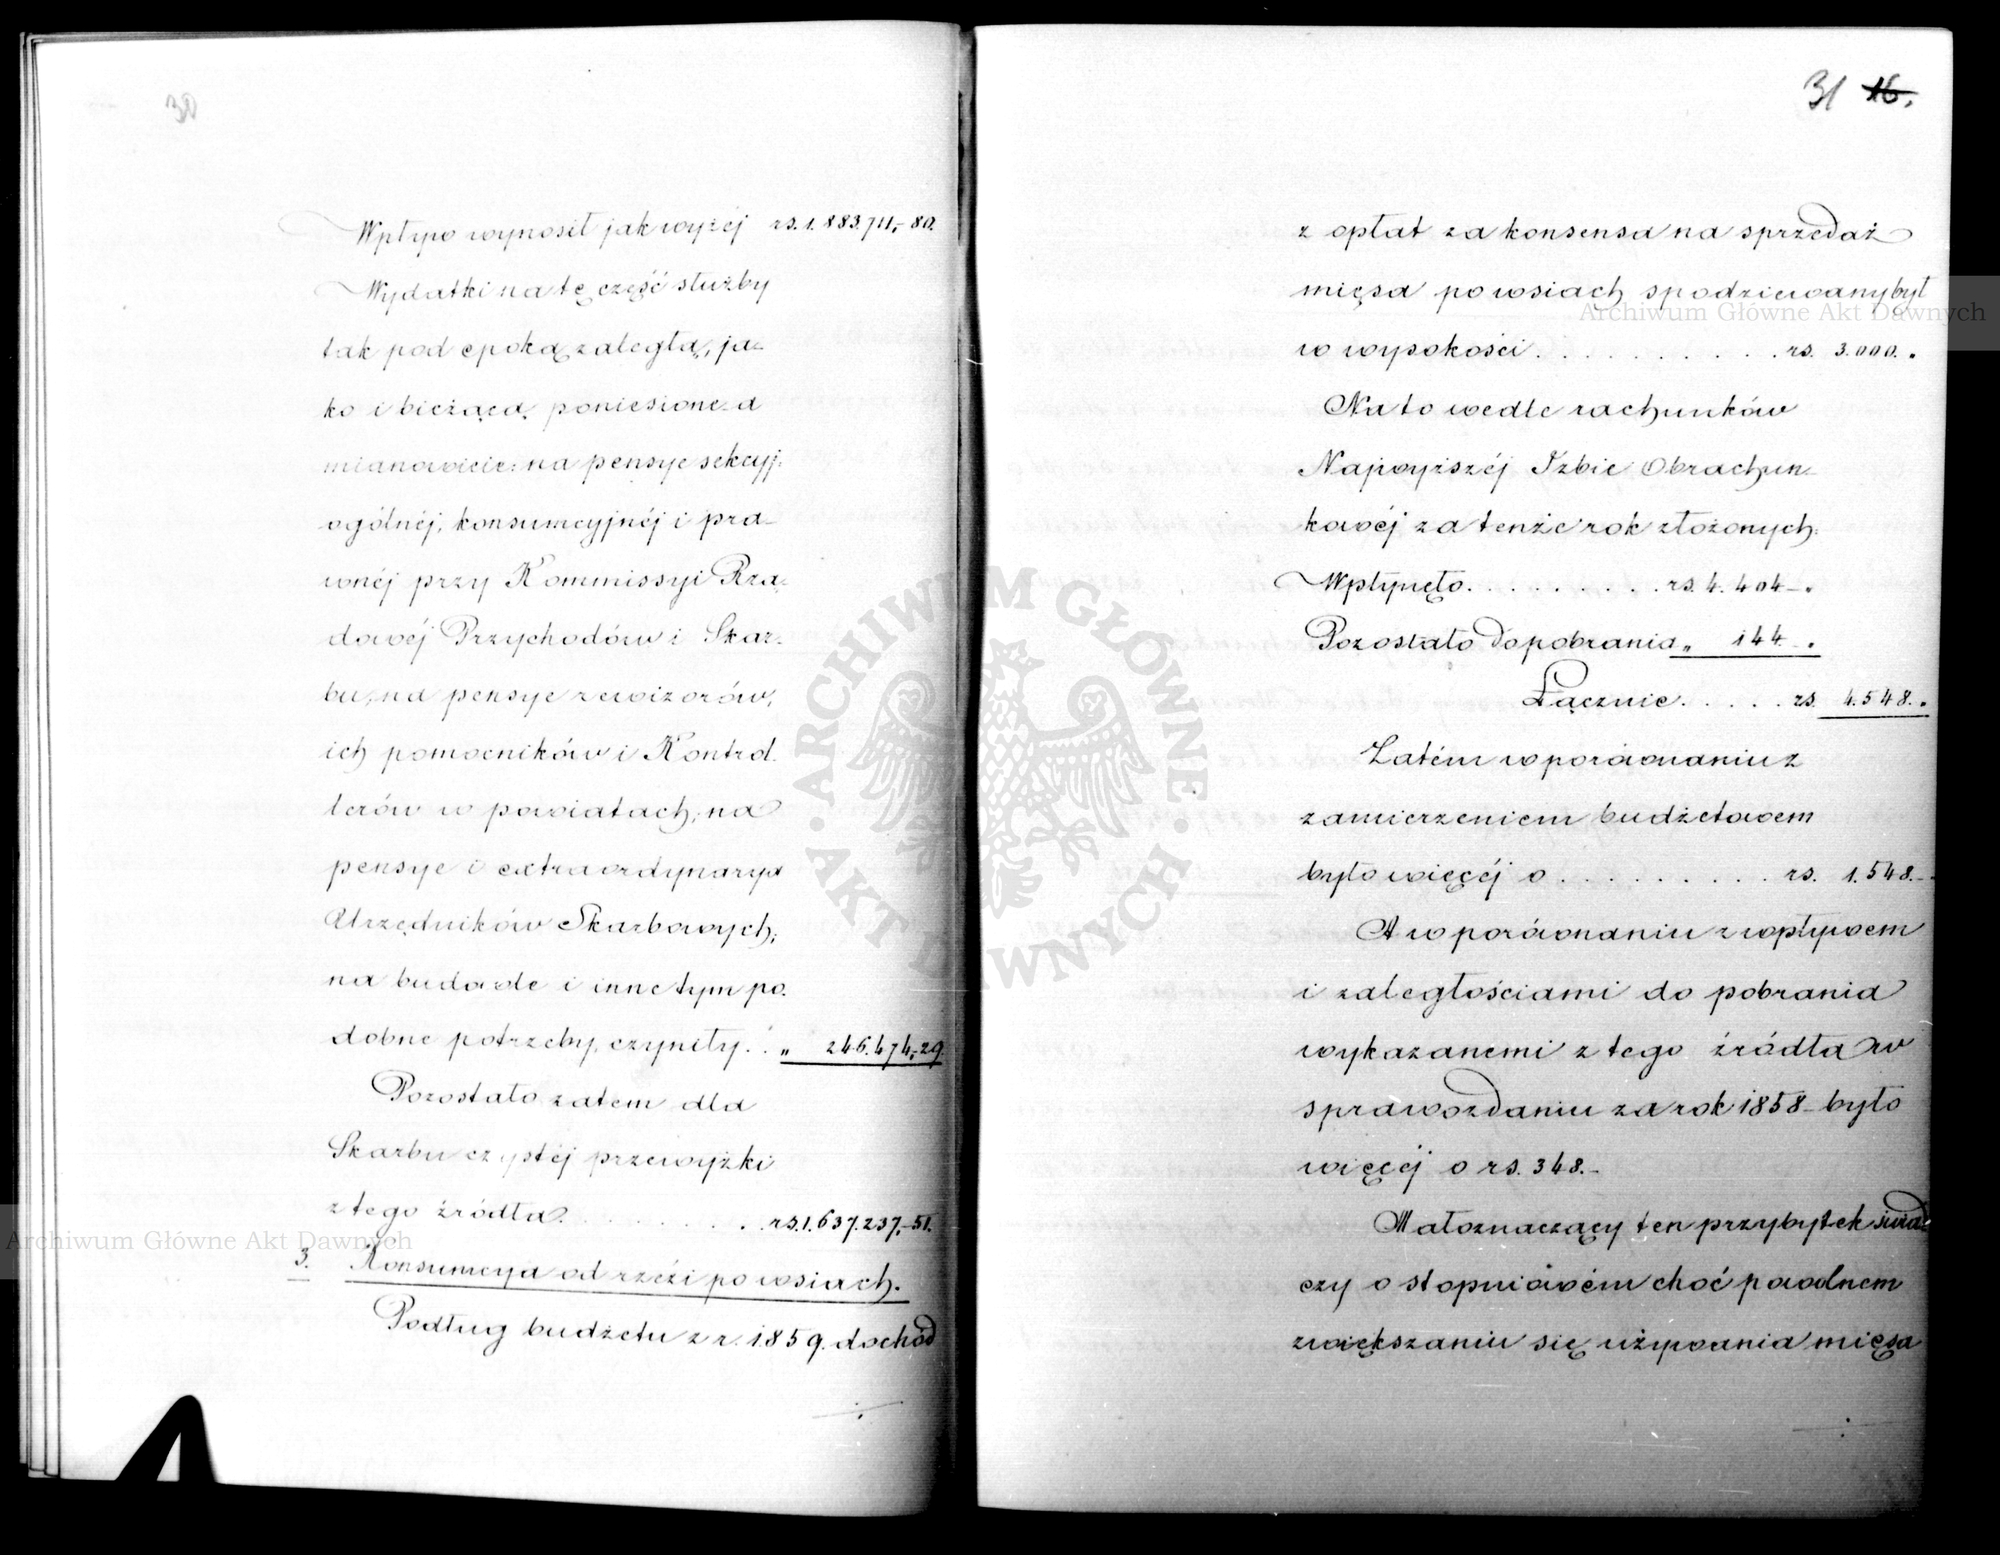 30
Wpływ wynosił jak wyżéj rs. 1.883.711,- 80.
Wydatki na tę część służby
tak pod epoką zaległą, ja-
ko i bieżącą poniesione a
mianowicie: na pensye sekcyj:
ogólnéj, konsumcyjnéj i pra-
wnéj przy Kommissyi Rzą-
dowéj Przychodów i Skar-
bu, na pensye rewizorów,
ich pomocników i Kontrol-
lerów w powiatach, na
pensye i extraordynarya
Urzędników Skarbowych,
na budowle i inne tym po-
dobne potrzeby, czyniły . . „ 246.474,-29.
Pozostało zatem dla
Skarbu czystéj przewyżki
z tego źródła . . . . . . . rs. 1.637.237,-51.
3. Konsumcya od rzezi po wsiach.
Podług budżetu z r. 1859. dochód
31 16.
z opłat za konsensa na sprzedaż
mięsa po wsiach spodziewany był
w wysokości . . . . . . . . . . rs. 3.000. „
Na to wedle rachunków
Najwyższéj Izbie Obrachun-
kowéj za tenże rok złożonych:
Wpłynęło . . . . . . . . . rs. 4.404 - „
Pozostało do pobrania „ 144. - „
Łącznie . . . . . rs. 4.548. „
Zatém w porównaniu z
zamierzeniem budżetowem
było więcéj o . . . . . . . . . rs. 1.548. -
A w porównaniu z wpływem
i zaległościami do pobrania
wykazanemi z tego źródła w
sprawozdaniu za rok 1858 - było
więcéj o rs. 348. -
Małoznaczący ten przybytek świad-
czy o stopniowém choć powolnem
zwiększaniu się używania mięsa
Archiwum Główne Akt Dawnych
Archiwum Główne Akt Dawnych
ARCHIWUM GŁÓWNE · AKT DAWNYCH ·